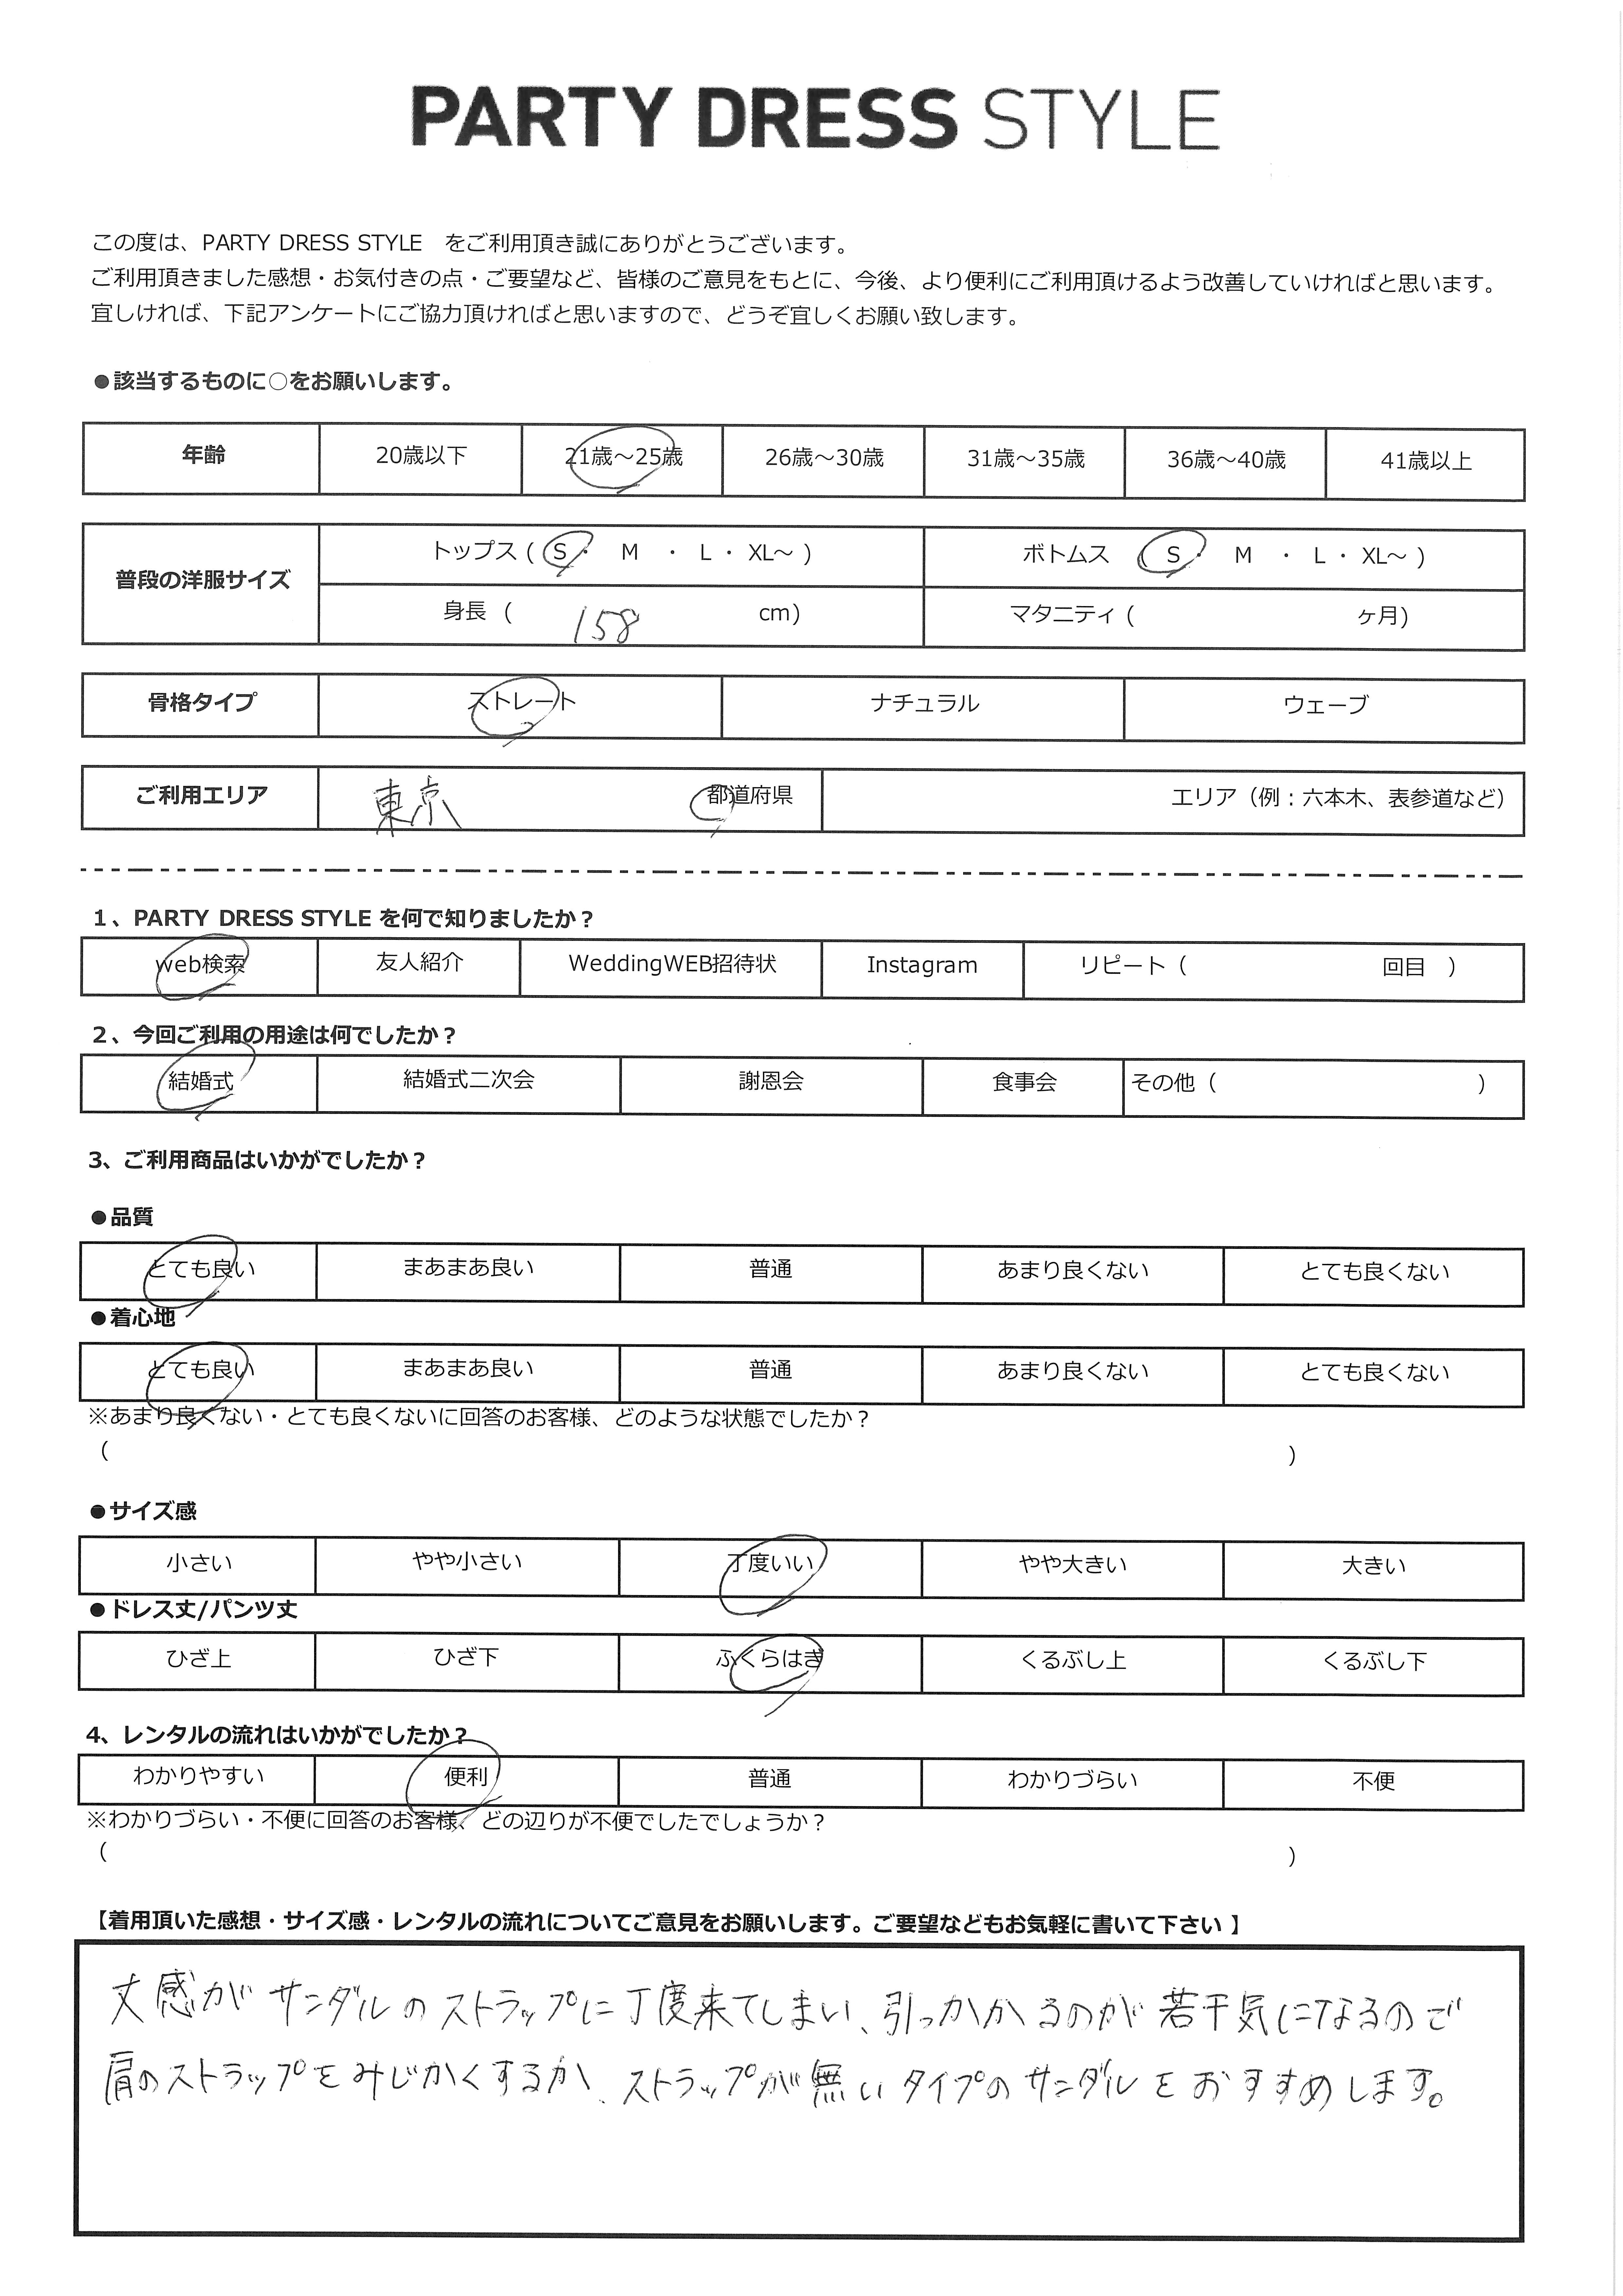 PARTY DRESS STYLE
この度は、PARTY DRESS STYLE　をご利用頂き誠にありがとうございます。
ご利用頂きました感想・お気付きの点・ご要望など、皆様のご意見をもとに、今後、より便利にご利用頂けるよう改善していければと思います。
宜しければ、下記アンケートにご協力頂ければと思いますので、どうぞ宜しくお願い致します。
●該当するものに○をお願いします。
年齢 20歳以下 21歳～25歳 26歳～30歳 31歳～35歳 36歳～40歳 41歳以上
普段の洋服サイズ
トップス ( S ・ M ・ L ・ XL～ ) ボトムス ( S ・ M ・ L ・ XL～ )
身長 ( 158 cm) マタニティ ( ヶ月)
骨格タイプ ストレート ナチュラル ウェーブ
ご利用エリア 東京 都道府県 エリア（例：六本木、表参道など）
1、PARTY DRESS STYLE を何で知りましたか？
web検索 友人紹介 WeddingWEB招待状 Instagram リピート（ 回目 ）
2、今回ご利用の用途は何でしたか？
結婚式 結婚式二次会 謝恩会 食事会 その他（ ）
3、ご利用商品はいかがでしたか？
●品質
とても良い まあまあ良い 普通 あまり良くない とても良くない
●着心地
とても良い まあまあ良い 普通 あまり良くない とても良くない
※あまり良くない・とても良くないに回答のお客様、どのような状態でしたか？
（ ）
●サイズ感
小さい やや小さい 丁度いい やや大きい 大きい
●ドレス丈/パンツ丈
ひざ上 ひざ下 ふくらはぎ くるぶし上 くるぶし下
4、レンタルの流れはいかがでしたか？
わかりやすい 便利 普通 わかりづらい 不便
※わかりづらい・不便に回答のお客様、どの辺りが不便でしたでしょうか？
（ ）
【着用頂いた感想・サイズ感・レンタルの流れについてご意見をお願いします。ご要望などもお気軽に書いて下さい 】
丈感がサンダルのストラップに丁度来てしまい、引っかかるのが若干気になるので
肩のストラップをみじかくするか、ストラップが無いタイプのサンダルをおすすめします。